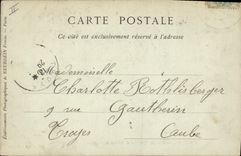 CARTE POSTALE
Ce côté est exclusivement réservé à l'adresse
Mademoiselle
Charlotte Rothlisberger
9 rue Gauthier
Troyes Aube
Etablissements Photographiques de NEURDEIN Frères. - Paris